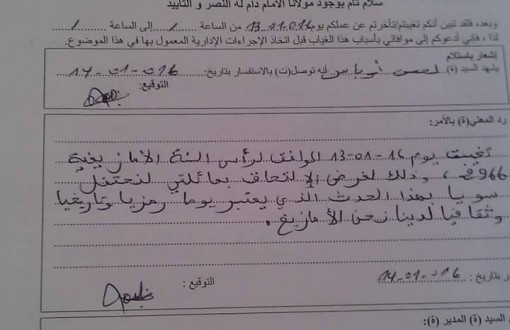 سلام تام بوجود مولانا الامام دام له النصر و التأييد
وبعد، فقد تبين أنكم تغيبتم/تأخرتم عن عملكم يوم 13.01.016 من الساعة / إلى الساعة /
لذا ، فإني أدعوكم إلى موافاتي بأسباب هذا الغياب قبل اتخاذ الإجراءات الإدارية المعمول بها في هذا الموضوع.
إشعار باستلام
يشهد السيد (ة) لحسن أوباس أنه توصل(ت) بالاستفسار بتاريخ: 14-01-016
التوقيع:
رد المعني(ة) بالأمر:
تغيبت يوم 16-01-13 الموافق لرأس السنة الأمازيغية
2966 ، وذلك لغرض الإلتحاق بعائلتي لنحتفل
سويا بهذا الحدث الذي يعتبر يوما رمزيا وتاريخيا
وثقافيا لدينا نحن الأمازيغ.
بتاريخ : 14-01-016 التوقيع :
السيد (ة) المدير (ة):